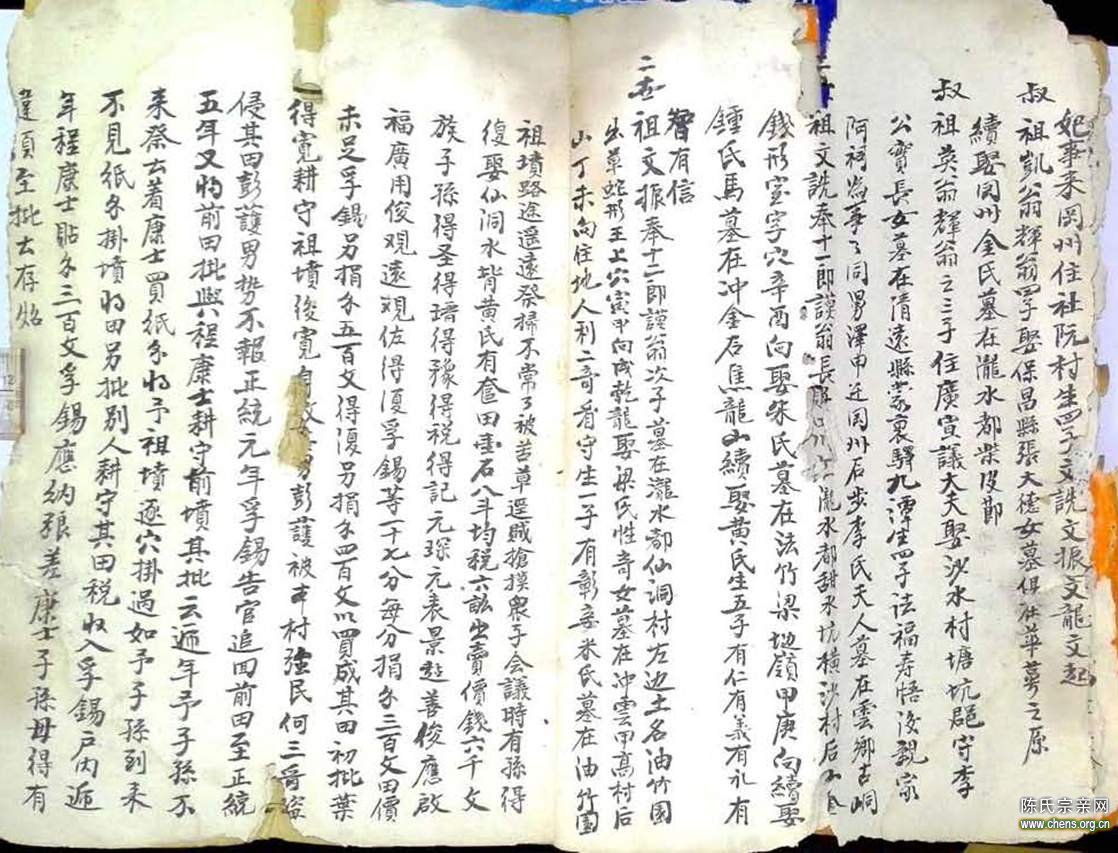 妃事来冈州住社阮村生四子文詵文振文龍文起
叔祖凱翁輝翁四子娶保昌縣張大德女墓俱在華萼之原
續娶同州金氏墓在瀧水都柴
叔祖英翁輝翁之三子住廣宣議大夫娶沙水村塘坑 守李
公寶長女墓在清遠縣 裏驛九潭生四子法福寿悟後親家
阿祠为事了同男澤申迁冈州石步李氏夫人墓在雲鄉古峒
祖文詵奉十一郎謨翁長 瀧水都甜水坑橫沙村后
錢形室字穴辛酉向娶朱氏墓在法竹梁地嶺甲庚向續娶
鍾氏馬墓在冲金石焦龍山續娶黄氏生五子有仁有義有礼有
智有信
二世祖文振奉十二郎謨翁次子墓在瀧水都仙洞村左边土名油竹園
出草蛇形王上穴寅甲向戌乾龍娶梁氏性奇女墓在冲雲甲高村后
山丁未向住地人利二哥看守生一子有彰妾米氏墓在油竹園
祖墳路途遥遠祭掃不常了被苦草遥賊搶摸眾子会議時有孫得
復娶仙洞水背黄氏有奩田壹石八斗均税六畝出賣價錢六千文
族子孫得圣得瑨得豫得税得記元琛元表景 善俊應啟
福廣用俊观遠观佐得復孚錫等一十七分每分捐钱三百文田價
未足孚錫另捐钱五百文得復另捐钱四百文以買成其田初批葉
得寬耕守祖墳後寬 男彭護被本村强民何三哥盗
侵其田彭護男势不報正統元年孚錫告官追回前田至正統
五年又将前田批與程康士耕守前墳其批云逓年予子孫不
来祭去着康士買紙钱将予祖墳逐穴掛過如予子孫到来
不見紙钱掛墳将田另批别人耕守其田税收入孚錫户内逓
年程康士貼钱三百文孚錫應納粮差康士子孫毋得有
違須至批去存炤
陈氏宗亲网
www.chens.org.cn